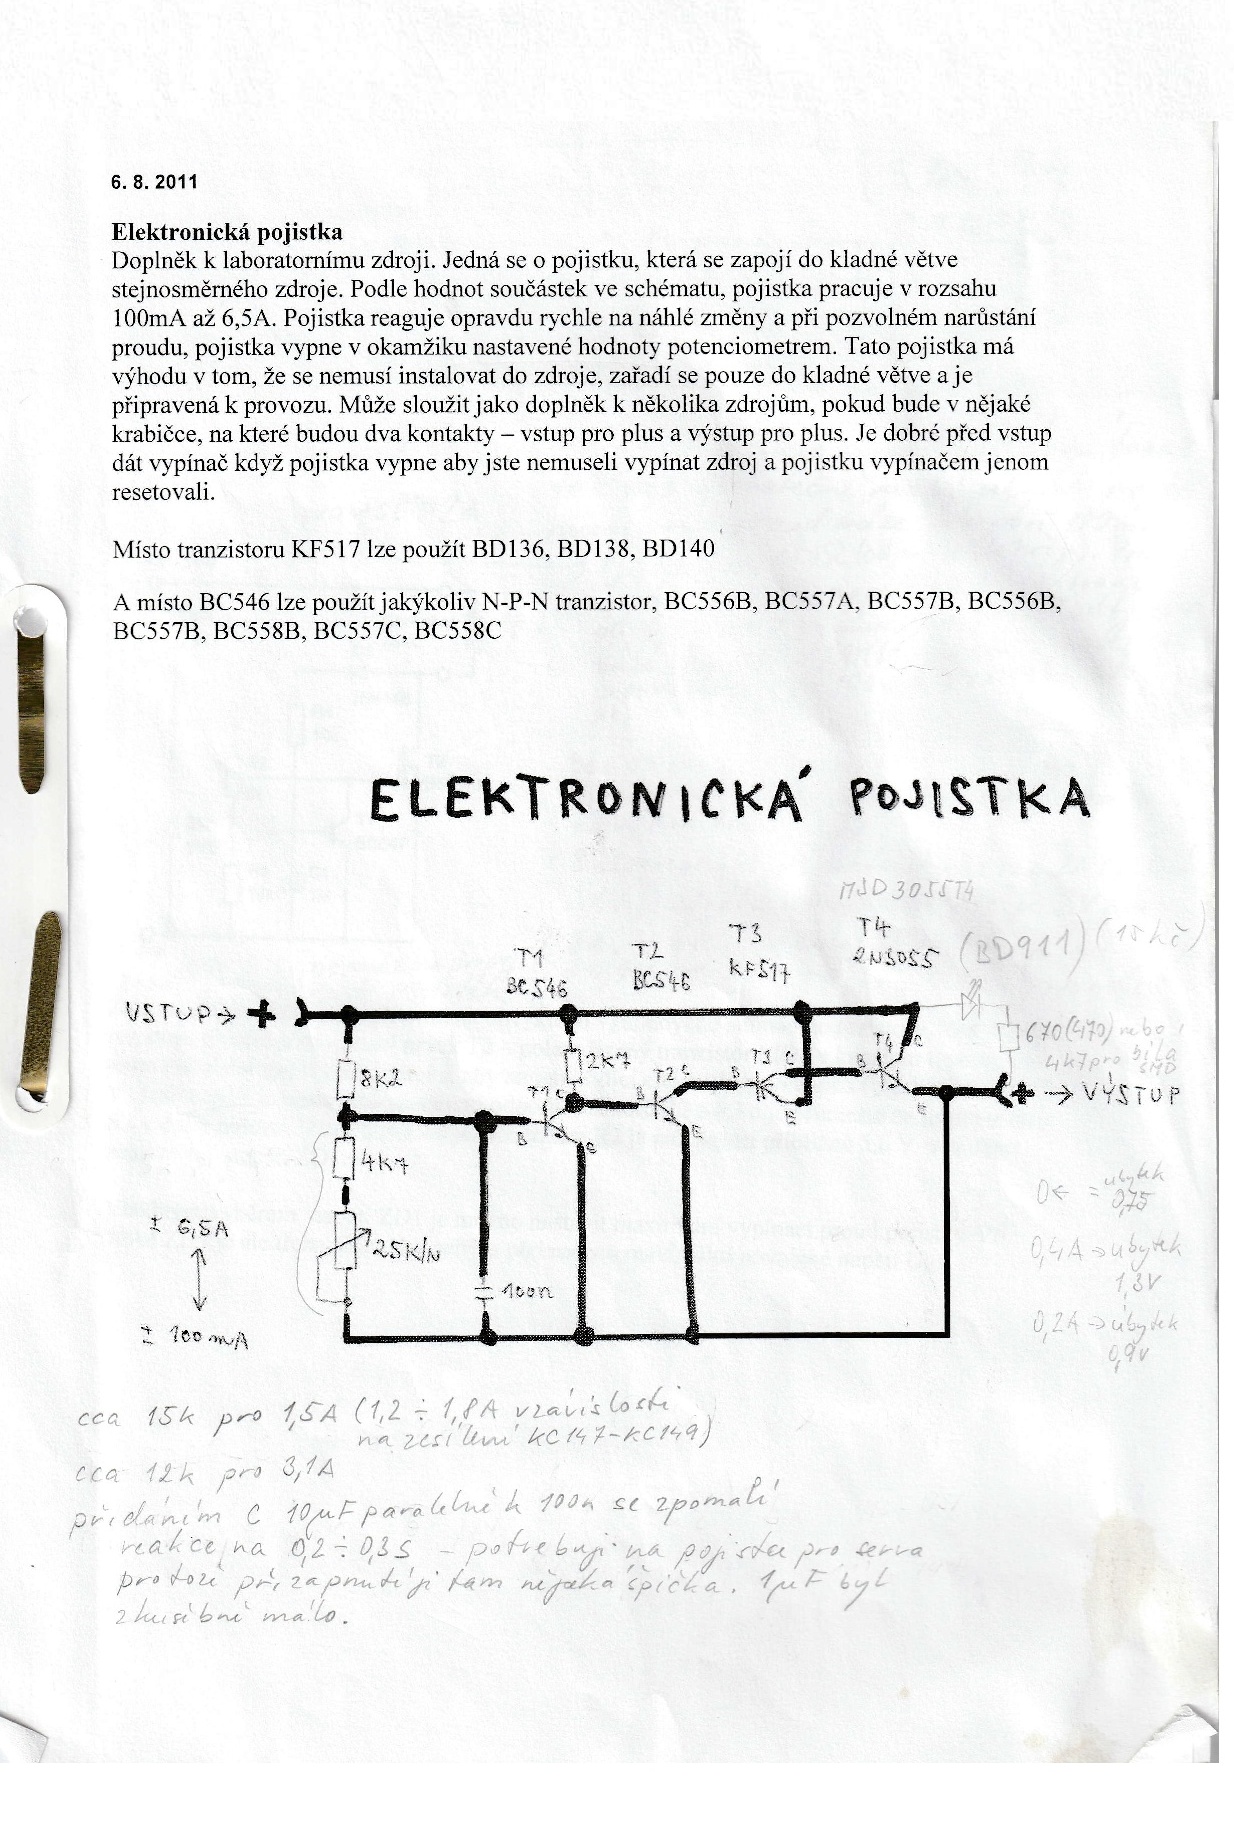 6. 8. 2011
Elektronická pojistka
Doplněk k laboratornímu zdroji. Jedná se o pojistku, která se zapojí do kladné větve
stejnosměrného zdroje. Podle hodnot součástek ve schématu, pojistka pracuje v rozsahu
100mA až 6,5A. Pojistka reaguje opravdu rychle na náhlé změny a při pozvolném narůstání
proudu, pojistka vypne v okamžiku nastavené hodnoty potenciometrem. Tato pojistka má
výhodu v tom, že se nemusí instalovat do zdroje, zařadí se pouze do kladné větve a je
připravená k provozu. Může sloužit jako doplněk k několika zdrojům, pokud bude v nějaké
krabičce, na které budou dva kontakty – vstup pro plus a výstup pro plus. Je dobré před vstup
dát vypínač když pojistka vypne aby jste nemuseli vypínat zdroj a pojistku vypínačem jenom
resetovali.
Místo tranzistoru KF517 lze použít BD136, BD138, BD140
A místo BC546 lze použít jakýkoliv N-P-N tranzistor, BC556B, BC557A, BC557B, BC556B,
BC557B, BC558B, BC557C, BC558C
ELEKTRONICKÁ POJISTKA
MJD3055T4
T1 T2 T3 T4
BC546 BC546 KF517 2N3055 (BD911) (15kč)
VSTUP → +
670(470) nebo
4k7 pro bílá
SMD
8K2
2K7
T1 C
T2 C
T3 C
T4 C
B
B
B
B
E
E
E
E
+ → VÝSTUP
4K7
25K/N
100n
± 6,5A
± 100mA
= úbytek
0,75
0,4A → úbytek
1,3V
0,2A → úbytek
0,9V
cca 15k pro 1,5A (1,2 ÷ 1,8A v závislosti
na zesílení KC147-KC149)
cca 12k pro 3,1A
přidáním C 10µF paralelně k 100n se zpomalí
reakce na 0,2 ÷ 0,3s – potřebuji na pojistku pro serva
protože při zapnutí je tam nějaká špička. 1µF byl
zkusebně málo.